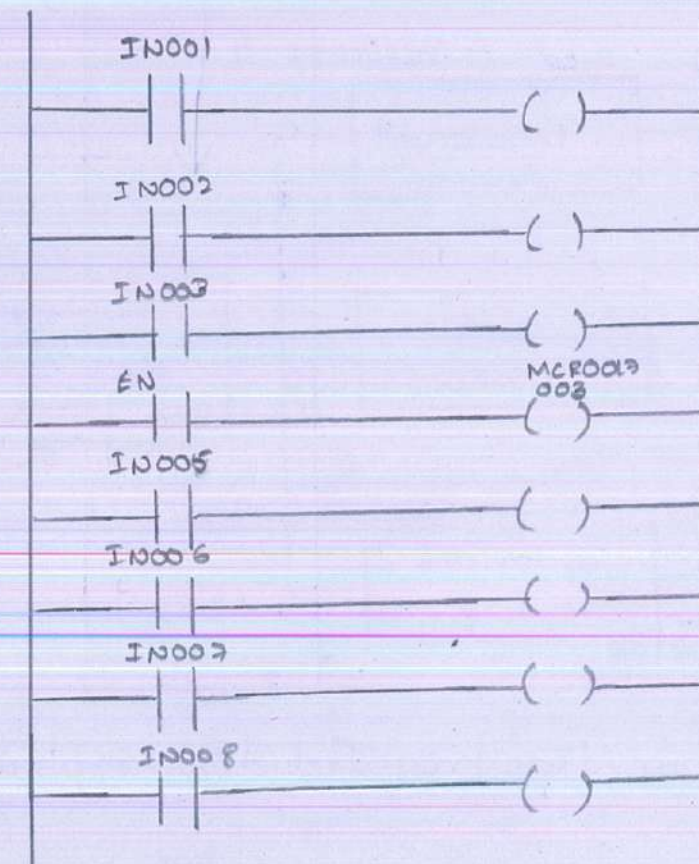 IN001
IN002
IN003
EN
003
IN005
IN006
IN007
IN008